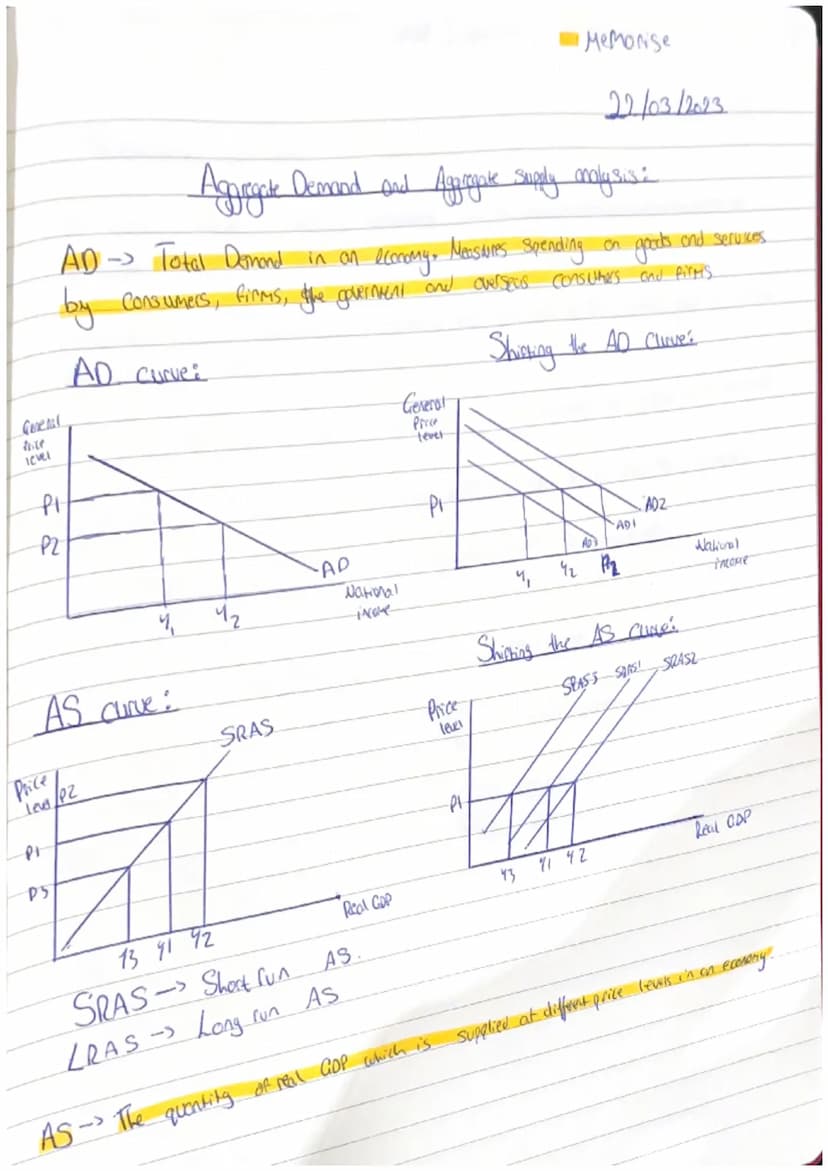 Memorise
22/03/2023
Aggregate Demand and Aggregate supply analysis:
AD -> Total Demand in an economy. Measures spending on goods and services
by consumers, firms, the government and overseas consumers and firms
Shifting the AD curve:
AD curve:
General
Price
level
P1
P2
AD
National
income
Y1
Y2
General
Price
level
P1
AD2
AD1
AD3
National
income
Y1
Y2
Shifting the AS curve:
AS curve:
SRAS
Price
level
P2
P1
P3
Real GDP
Y3 Y1 Y2
Price
level
SRAS3 SRAS1 SRAS2
P1
Real GDP
Y3 Y1 Y2
SRAS -> Short run AS.
LRAS -> Long run AS
AS -> The quantity of real GDP which is supplied at different price levels in an economy.